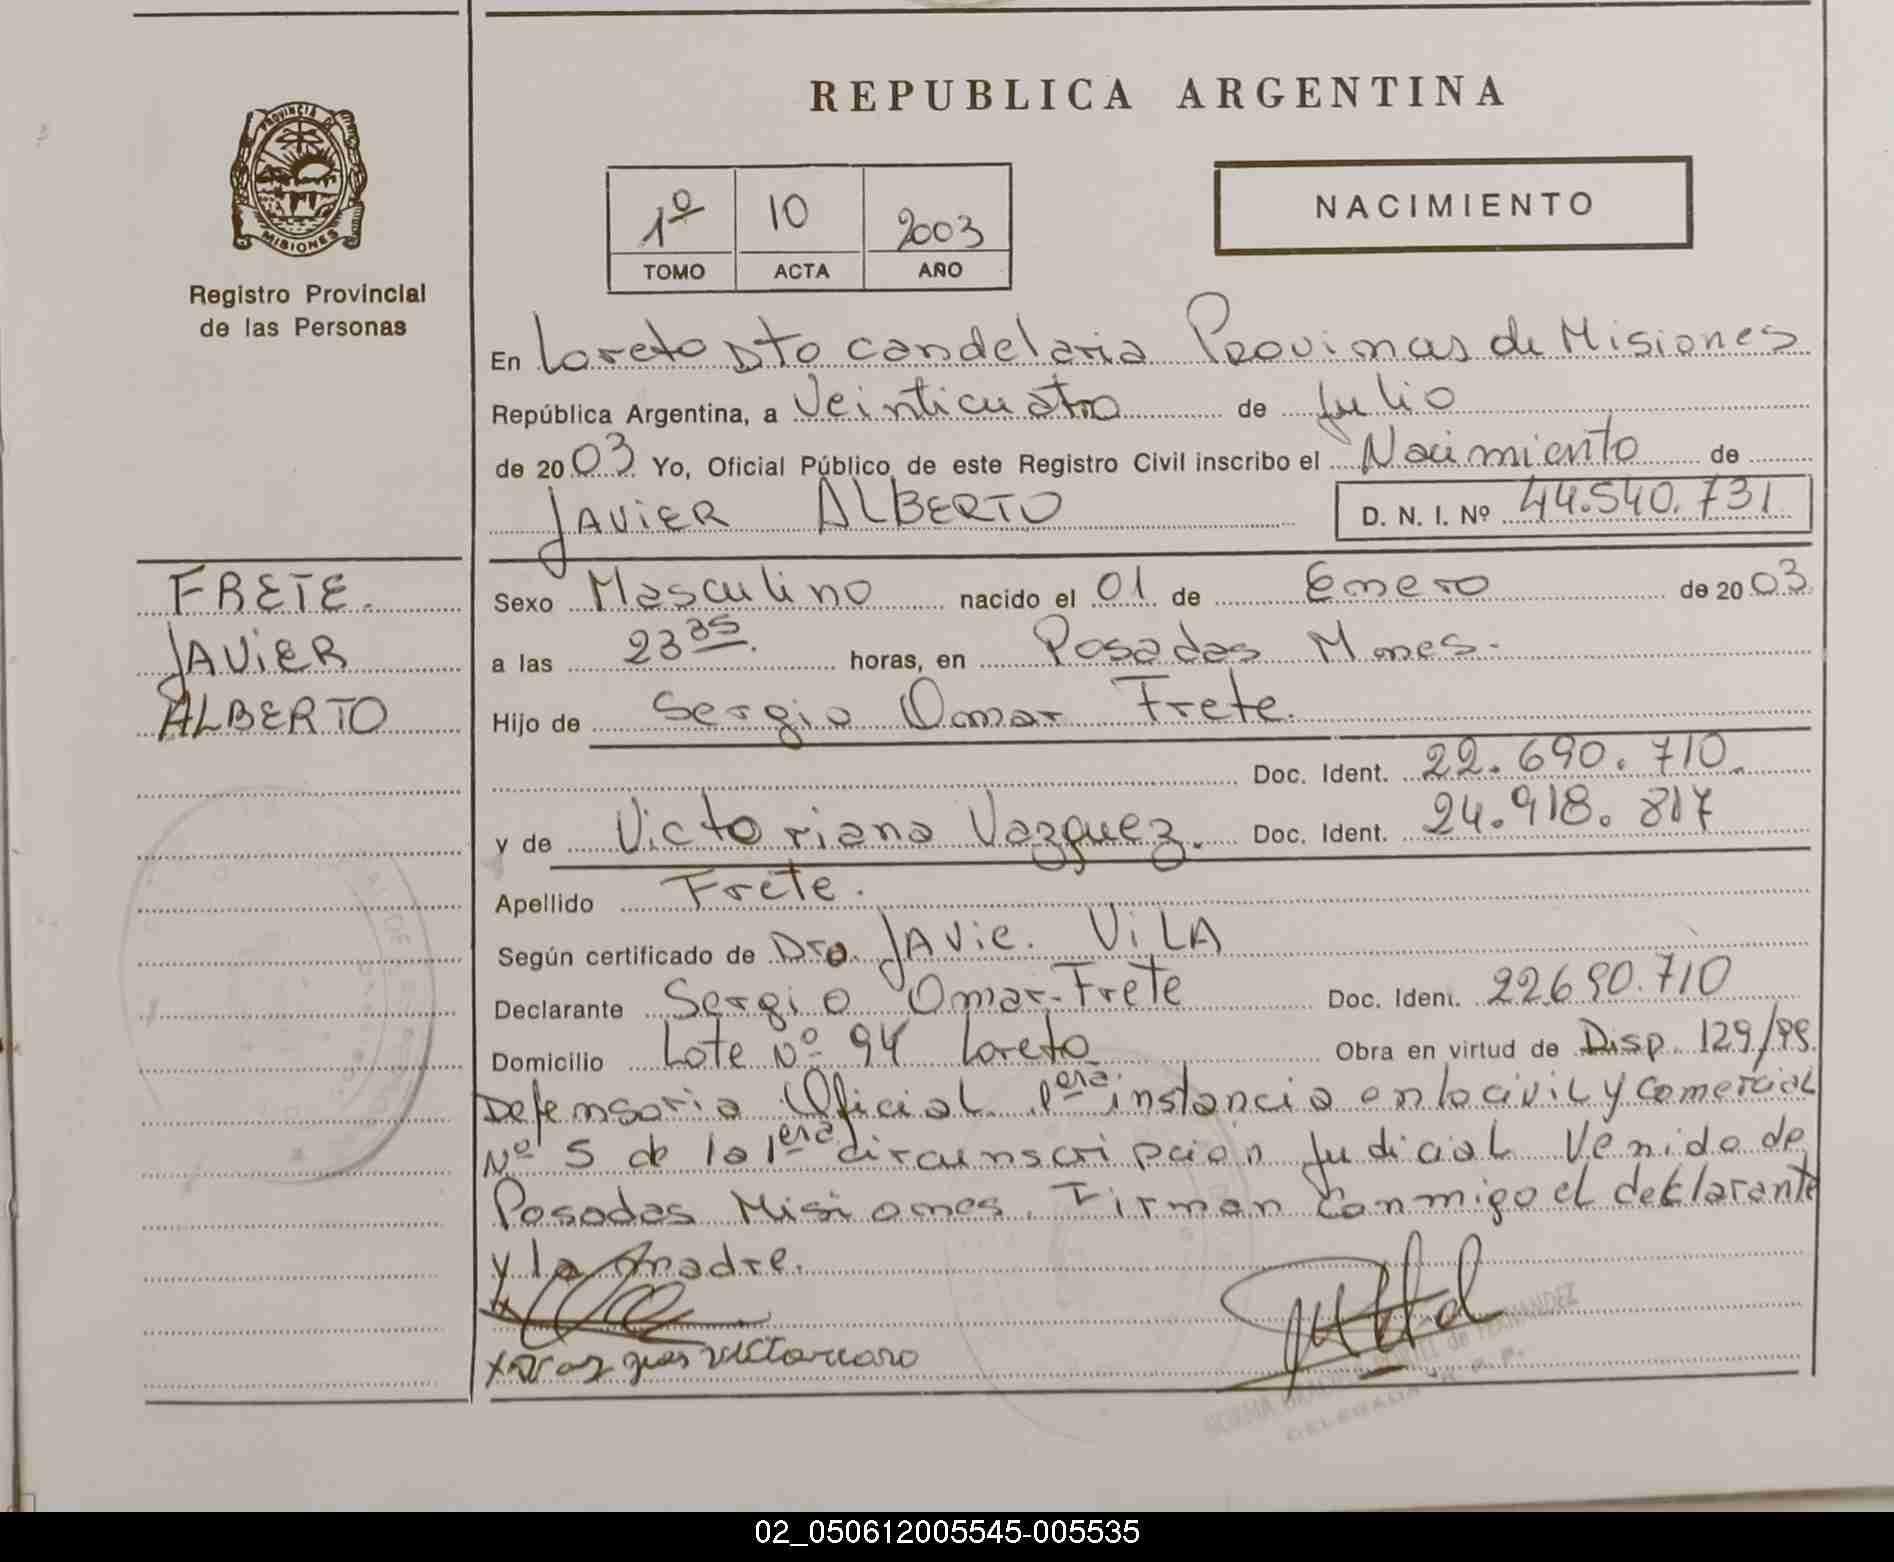 REPUBLICA ARGENTINA
PROVINCIA DE
MISIONES
Registro Provincial
de las Personas
1º 10 2003
TOMO ACTA AÑO
NACIMIENTO
En Loreto Dto candelaria Provimas de Misiones
República Argentina, a Veinticuatro de Julio
de 2003 Yo, Oficial Público de este Registro Civil inscribo el Nacimiento de
JAVIER ALBERTO D. N. I. Nº 44.540.731
FRETE.
JAVIER
ALBERTO
Sexo Masculino nacido el 01 de Enero de 2003
a las 23 35 horas, en Posadas Mnes.
Hijo de Sergio Omar Frete.
Doc. Ident. 22.690.710.
y de Victoriana Vazquez. Doc. Ident. 24.918.817
Apellido Frete.
Según certificado de Dro. JAVie. ViLA
Declarante Sergio Omar Frete Doc. Ident. 22690.710
Domicilio Lote Nº 94 Loreto Obra en virtud de Disp. 129/99
Defensoria Oficial 1era instancia en lo civil y comercial
Nº 5 de la 1era circunscripcion Judicial Venido de
Posadas Misiones. Firman conmigo el declarante
y la madre.
de FERNANDEZ
02_050612005545-005535